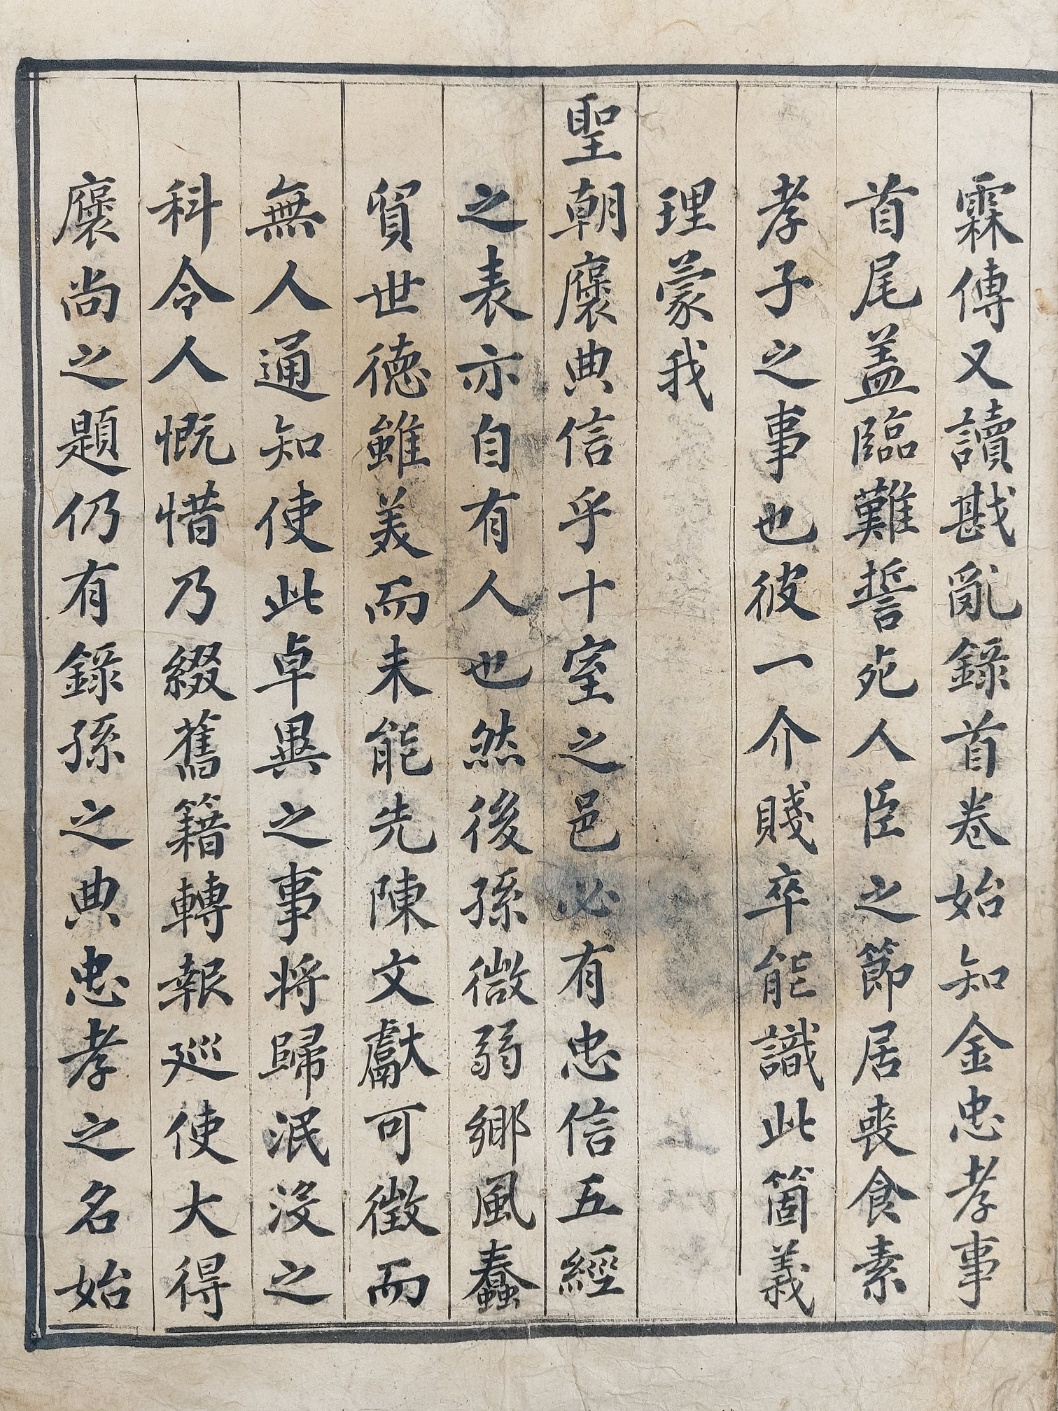 霖傳又讀戡亂錄首卷始知金忠孝事
首尾盖臨難誓死人臣之節居喪食素
孝子之事也彼一介賤卒能識此箇義
理蒙我
聖朝褒典信乎十室之邑必有忠信五經
之表亦自有人也然後孫微弱鄉風蠢
貿世德雖美而未能先陳文獻可徵而
無人通知使此卓異之事将歸泯沒之
科令人慨惜乃綴舊籍轉報巡使大得
褒尚之題仍有錄孫之典忠孝之名始